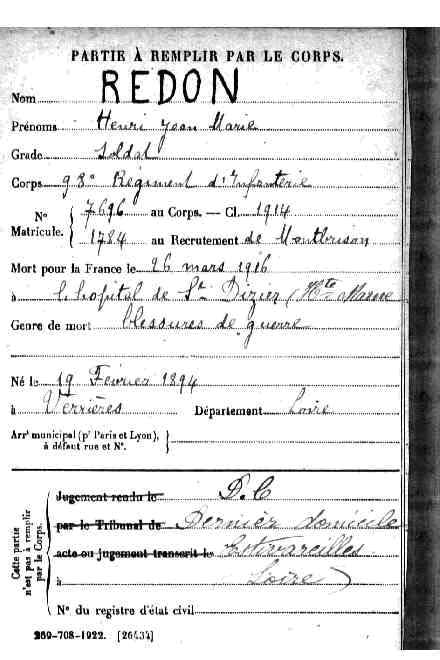 PARTIE À REMPLIR PAR LE CORPS.
Nom REDON
Prénoms Henri Jean Marie
Grade Soldat
Corps 98e Régiment d'Infanterie
N° Matricule. { 7696 au Corps. — Cl. 1914
1784 au Recrutement de Montbrison
Mort pour la France le 26 mars 1916
à l'hopital de St Dizier (Hte Marne
Genre de mort blessures de guerre
Né le 19 Février 1894
à Verrières Département Loire
Arrt municipal (pr Paris et Lyon), à défaut rue et N°.
Cette partie n'est pas à remplir par le Corps.
Jugement rendu le D.C
par le Tribunal de Dernier domicile
acte ou jugement transcrit le Estivareilles
à Loire)
N° du registre d'état civil
259-708-1922. [26434]